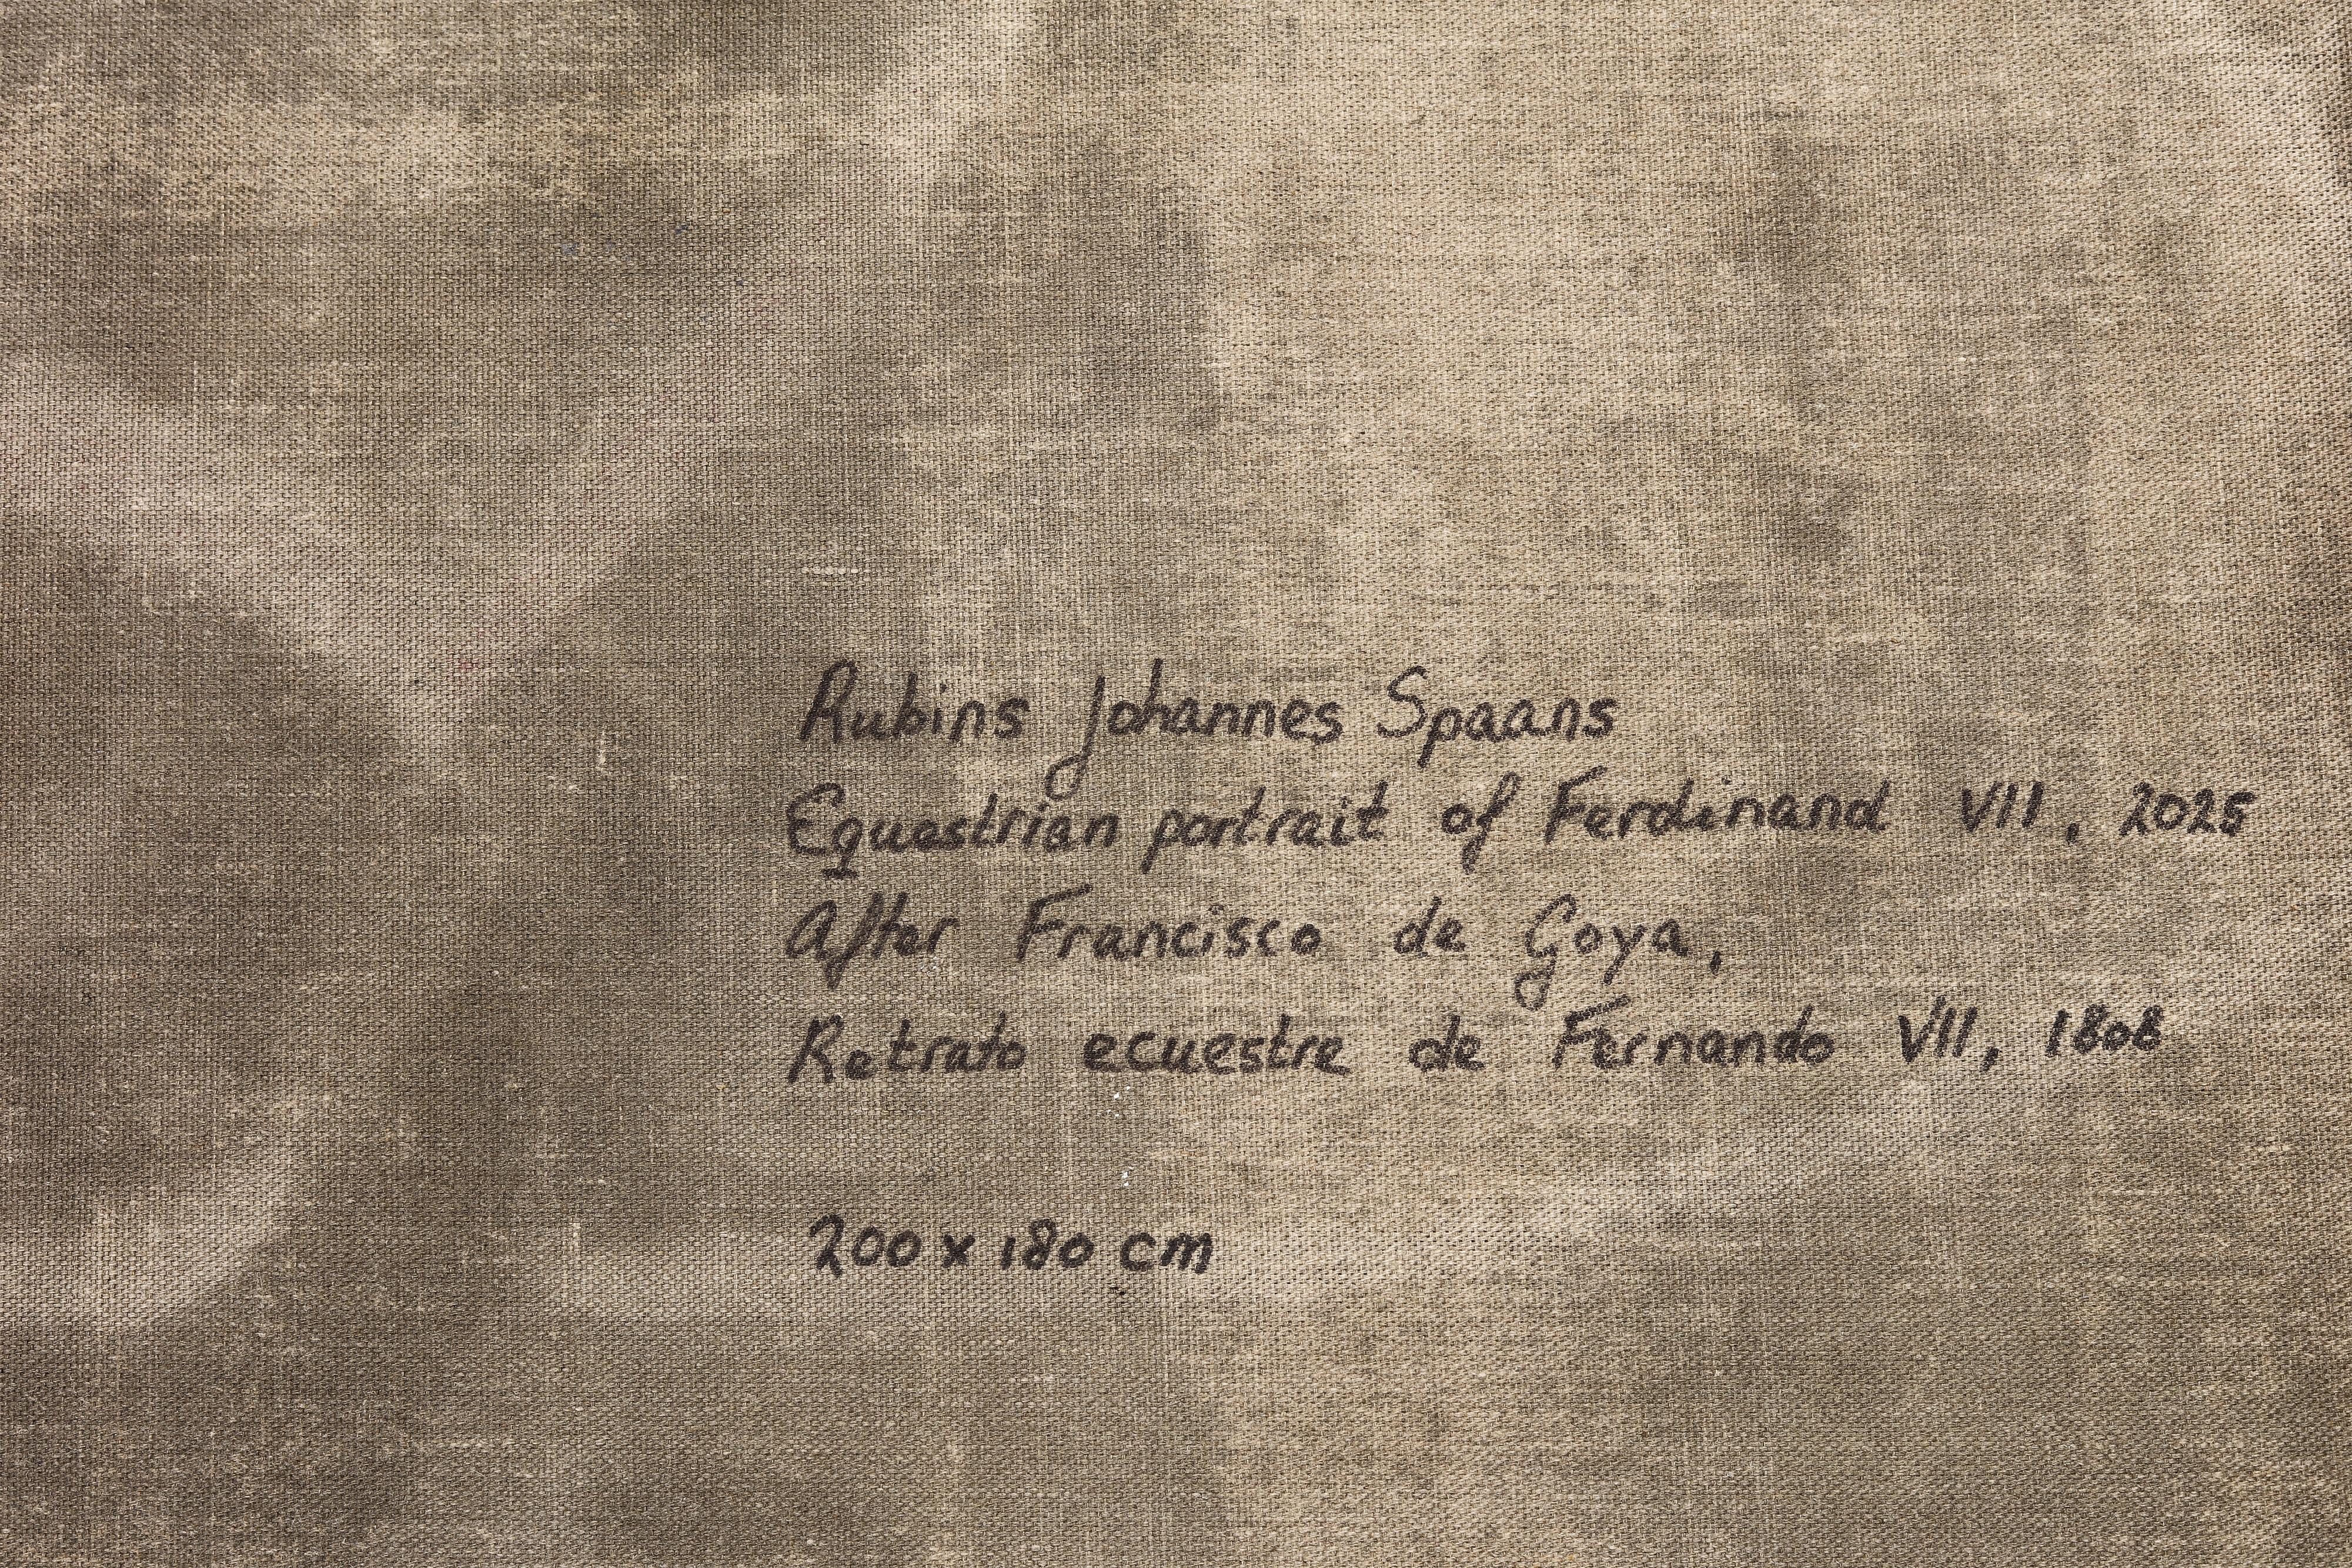 Rubins Johannes Spaans
Equestrian portrait of Ferdinand VII, 2025
After Francisco de Goya,
Retrato ecuestre de Fernando VII, 1808
200 x 180 cm